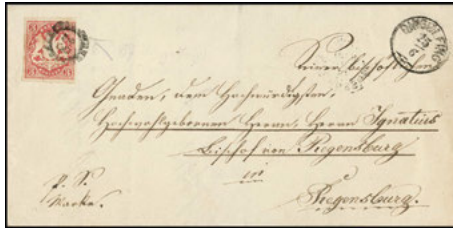 DINGOLFING
15
6
Seiner bischöflichen
Gnaden, dem Hochwürdigsten,
Hochwohlgebornen Herrn, Herrn Ignatius
Bischof von Regensburg
in
Regensburg.
P. S.
Marke.